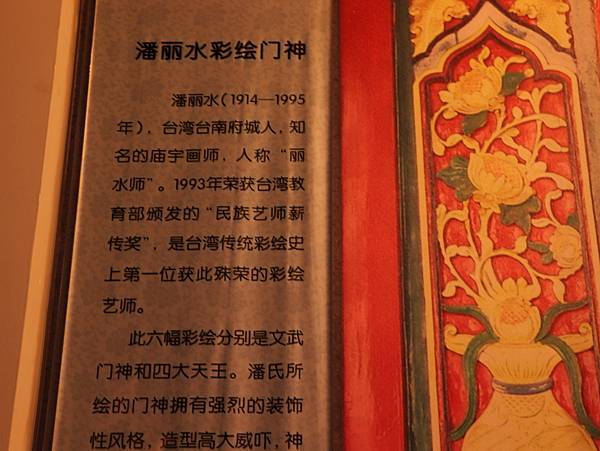 潘丽水彩绘门神
潘丽水(1914—1995
年)，台湾台南府城人，知
名的庙宇画师，人称“丽
水师”。1993年荣获台湾教
育部颁发的“民族艺师薪
传奖”，是台湾传统彩绘史
上第一位获此殊荣的彩绘
艺师。
此六幅彩绘分别是文武
门神和四大天王。潘氏所
绘的门神拥有强烈的装饰
性风格，造型高大威吓，神